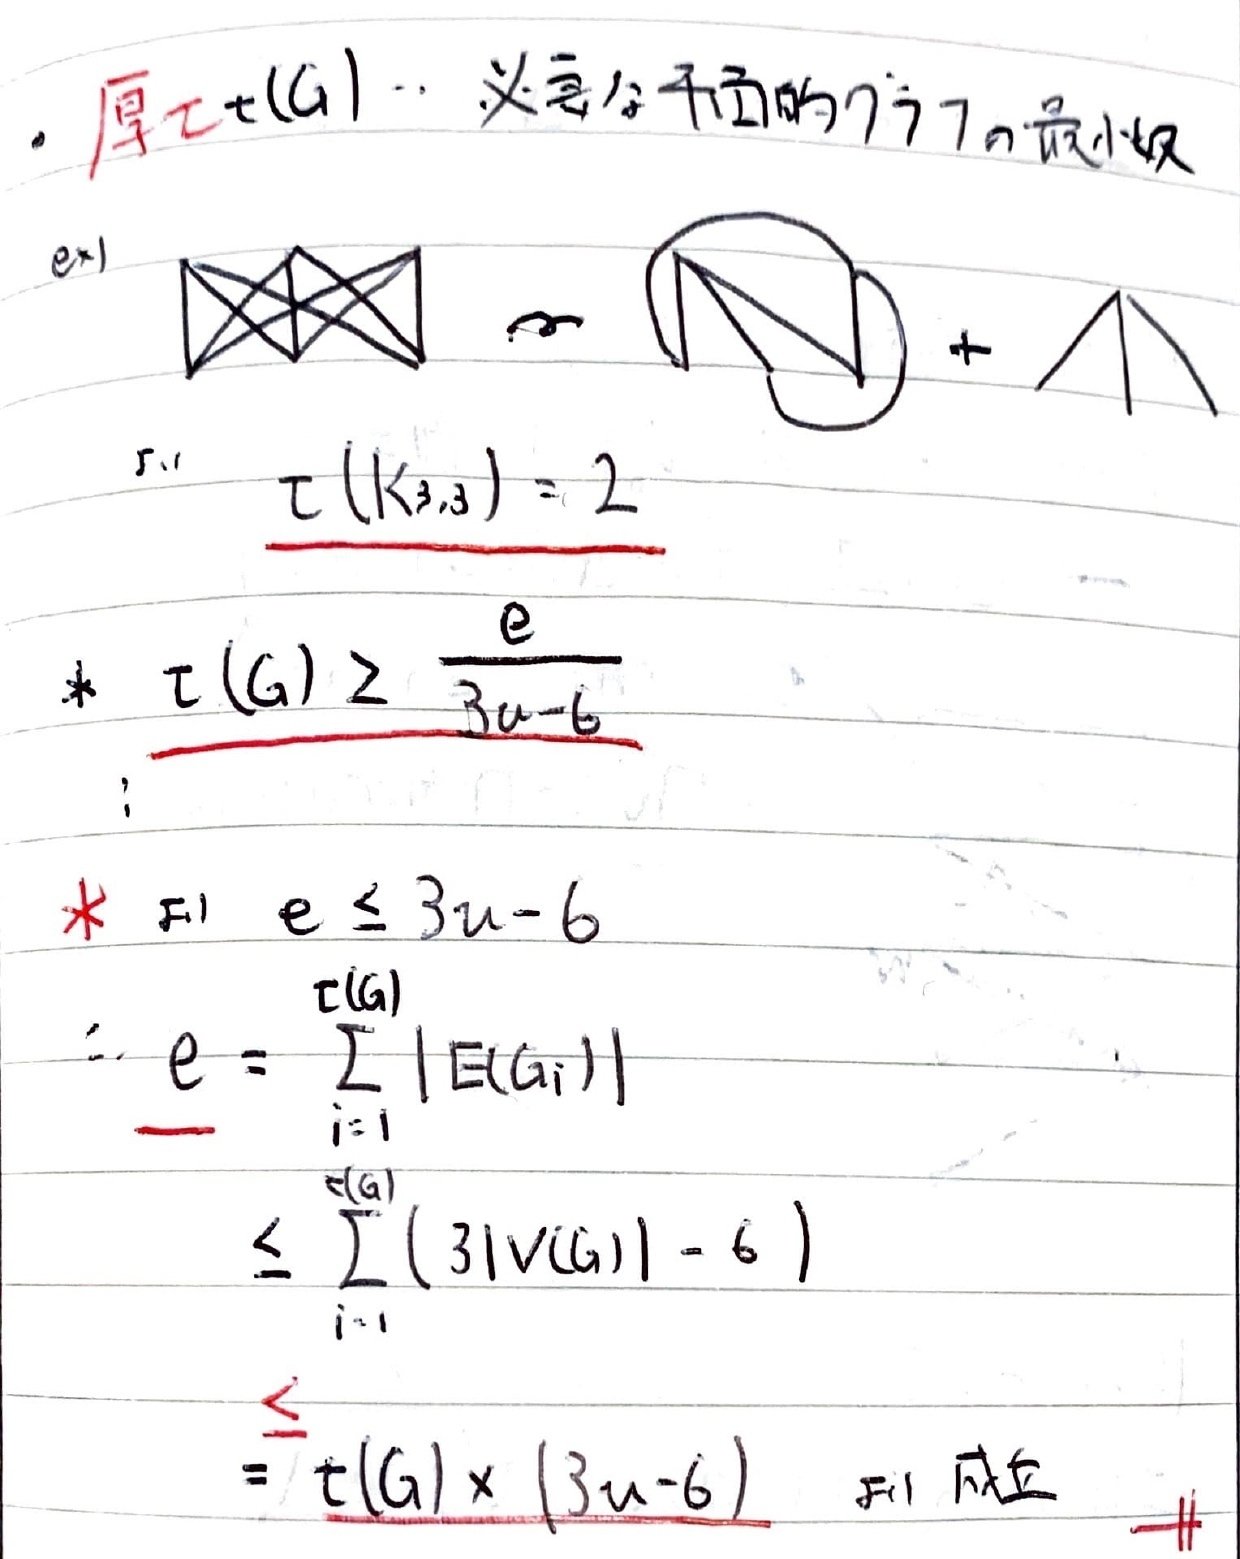 ・厚さ t(G) ‥ 必要な平面的グラフの最小数
ex1
~ +
より τ(K3,3) = 2
* τ(G) ≥ e / (3n-6)
∵
* より e ≤ 3n-6
∴ e = Σ_{i=1}^{τ(G)} |E(Gi)|
≤ Σ_{i=1}^{t(G)} (3|V(G)| - 6)
≤
= t(G) × (3n-6) より 成立